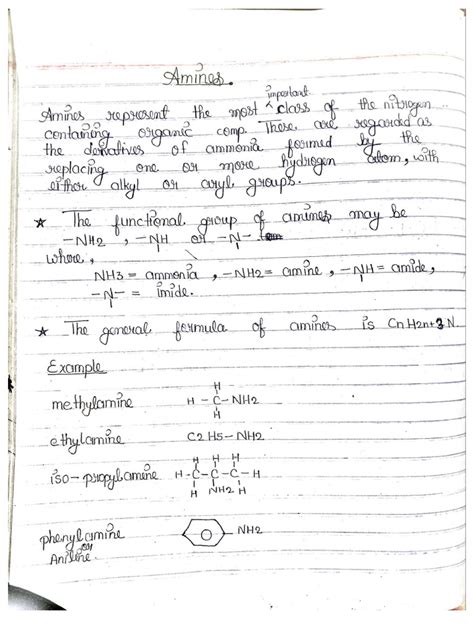 Amines.
Amines represent the most important class of the nitrogen
containing organic comp. There are regarded as
the derivatives of ammonia formed by the
replacing one or more hydrogen atom, with
either alkyl or aryl groups.
★ The functional group of amines may be
-NH2, -NH or -N-
where,
NH3 = ammonia, -NH2 = amine, -NH = amide,
-N- = imide.
★ The general formula of amines is CnH2n+3N
Example
methylamine H - C - NH2
H
H
ethylamine C2H5-NH2
iso-propylamine H-C-C-C-H
H H H
H NH2 H
phenylamine -NH2
or
Aniline